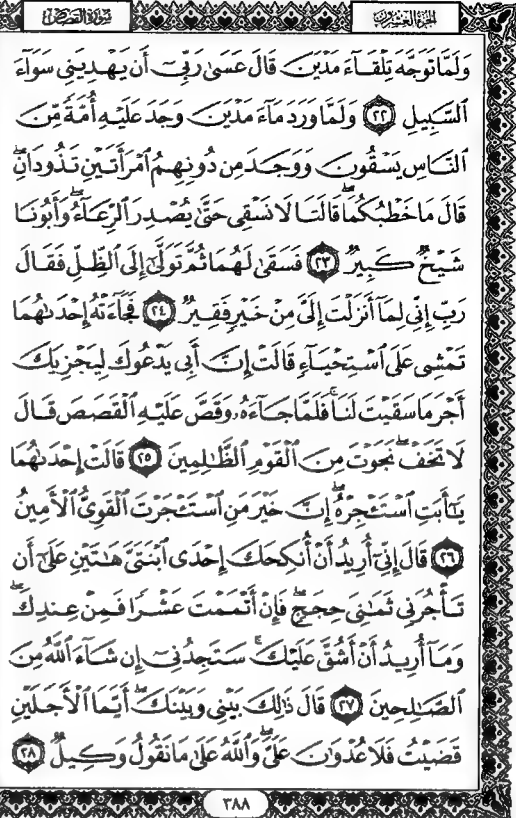 سورة القصص
الجزء العشرون
وَلَمَّا تَوَجَّهَ تِلْقَآءَ مَدْيَنَ قَالَ عَسَىٰ رَبِّىٓ أَن يَهْدِيَنِى سَوَآءَ
ٱلسَّبِيلِ ٢٢ وَلَمَّا وَرَدَ مَآءَ مَدْيَنَ وَجَدَ عَلَيْهِ أُمَّةً مِّنَ
ٱلنَّاسِ يَسْقُونَ وَوَجَدَ مِن دُونِهِمُ ٱمْرَأَتَيْنِ تَذُودَانِۖ
قَالَ مَا خَطْبُكُمَاۖ قَالَتَا لَا نَسْقِى حَتَّىٰ يُصْدِرَ ٱلرِّعَآءُۖ وَأَبُونَا
شَيْخٌ كَبِيرٌ ٢٣ فَسَقَىٰ لَهُمَا ثُمَّ تَوَلَّىٰٓ إِلَى ٱلظِّلِّ فَقَالَ
رَبِّ إِنِّى لِمَآ أَنزَلْتَ إِلَىَّ مِنْ خَيْرٍ فَقِيرٌ ٢٤ فَجَآءَتْهُ إِحْدَىٰهُمَا
تَمْشِى عَلَى ٱسْتِحْيَآءٍ قَالَتْ إِنَّ أَبِى يَدْعُوكَ لِيَجْزِيَكَ
أَجْرَ مَا سَقَيْتَ لَنَاۚ فَلَمَّا جَآءَهُۥ وَقَصَّ عَلَيْهِ ٱلْقَصَصَ قَالَ
لَا تَخَفْۖ نَجَوْتَ مِنَ ٱلْقَوْمِ ٱلظَّٰلِمِينَ ٢٥ قَالَتْ إِحْدَىٰهُمَا
يَٰٓأَبَتِ ٱسْتَـْٔجِرْهُۖ إِنَّ خَيْرَ مَنِ ٱسْتَـْٔجَرْتَ ٱلْقَوِىُّ ٱلْأَمِينُ
٢٦ قَالَ إِنِّىٓ أُرِيدُ أَنْ أُنكِحَكَ إِحْدَى ٱبْنَتَىَّ هَٰتَيْنِ عَلَىٰٓ أَن
تَأْجُرَنِى ثَمَٰنِىَ حِجَجٍۖ فَإِنْ أَتْمَمْتَ عَشْرًا فَمِنْ عِندِكَۖ
وَمَآ أُرِيدُ أَنْ أَشُقَّ عَلَيْكَۚ سَتَجِدُنِىٓ إِن شَآءَ ٱللَّهُ مِنَ
ٱلصَّٰلِحِينَ ٢٧ قَالَ ذَٰلِكَ بَيْنِى وَبَيْنَكَۖ أَيَّمَا ٱلْأَجَلَيْنِ
قَضَيْتُ فَلَا عُدْوَٰنَ عَلَىَّۖ وَٱللَّهُ عَلَىٰ مَا نَقُولُ وَكِيلٌ ٢٨
٣٨٨